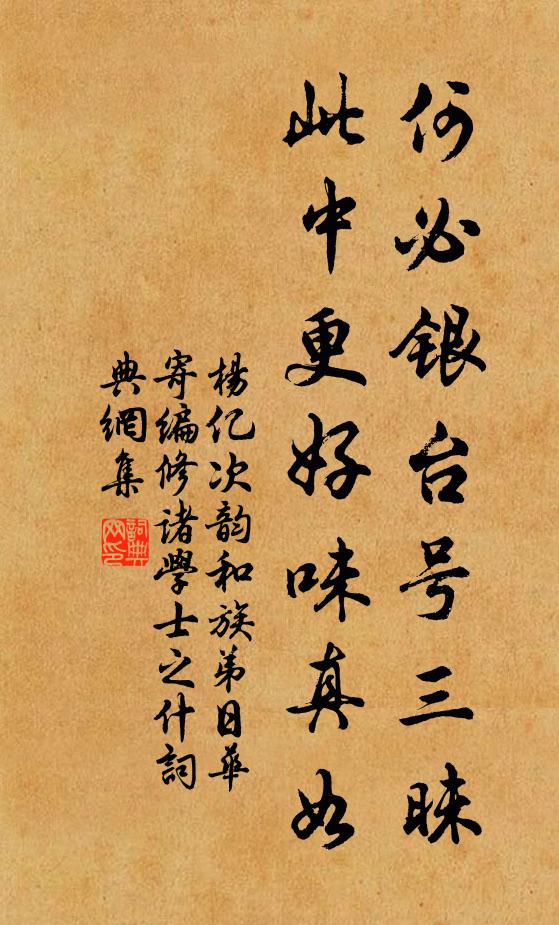 何必银台号三昧
此中更好味真如
楊亿次韵和族弟日華
寄编修诸學士之什詞
典網集
詞典网印